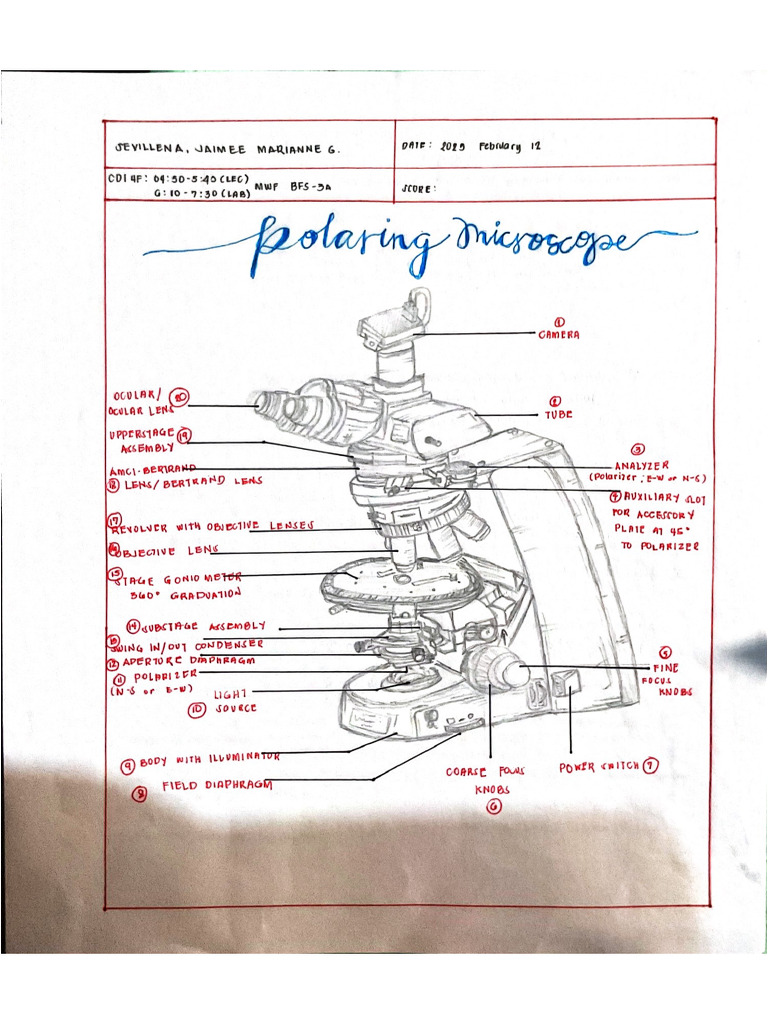 SEVILLENA, JAIMEE MARIANNE G.
DATE: 2025 February 12
CDI 4F: 04:30-5:40 (LEC)
6:10-7:30 (LAB)
MWF BFS-3A
SCORE:
Polaring Microscope
① CAMERA
② TUBE
③ ANALYZER
(Polarizer; E-W or N-S)
④ AUXILIARY SLOT
FOR ACCESSORY
PLATE AT 45°
TO POLARIZER
⑤ FINE
FOCUS
KNOBS
POWER SWITCH ⑦
COARSE FOCUS
KNOBS
⑥
⑧ FIELD DIAPHRAGM
⑨ BODY WITH ILLUMINATOR
LIGHT
⑩ SOURCE
⑪ POLARIZER
(N-S or E-W)
⑫ APERTURE DIAPHRAGM
⑬ SWING IN/OUT CONDENSER
⑭ SUBSTAGE ASSEMBLY
⑮ STAGE GONIOMETER
360° GRADUATION
⑯ OBJECTIVE LENS
⑰ REVOLVER WITH OBJECTIVE LENSES
AMCI-BERTRAND
⑱ LENS/BERTRAND LENS
UPPERSTAGE ⑲
ASSEMBLY
OCULAR/ ⑳
OCULAR LENS